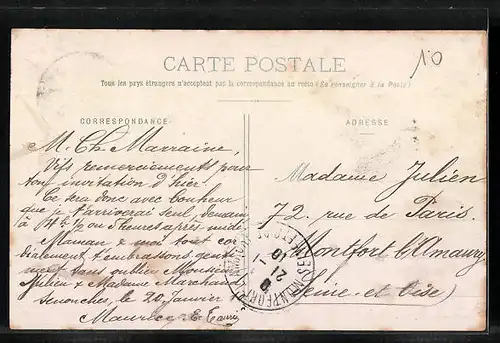 10
CARTE POSTALE
Tous les pays étrangers n'acceptent pas la correspondance au recto (Se renseigner à la Poste)
CORRESPONDANCE
ADRESSE
M. Ch. Marraine,
Vifs remerciements pour
ton invitation d'hier.
Ce sera donc avec bonheur
que je t'arriverai seul, demain
à 4h ½ ou 5 heures après-midi
Maman & moi tout cor
dialement t'embrassons
sans oublier Monsieur
Julien & Madame Marchand
Senonches, le 20 janvier
Maurice
Madame Julien
72, rue de Paris.
Montfort l'Amaury
(Seine-et-Oise)
MONTFORT
21 - 1
10